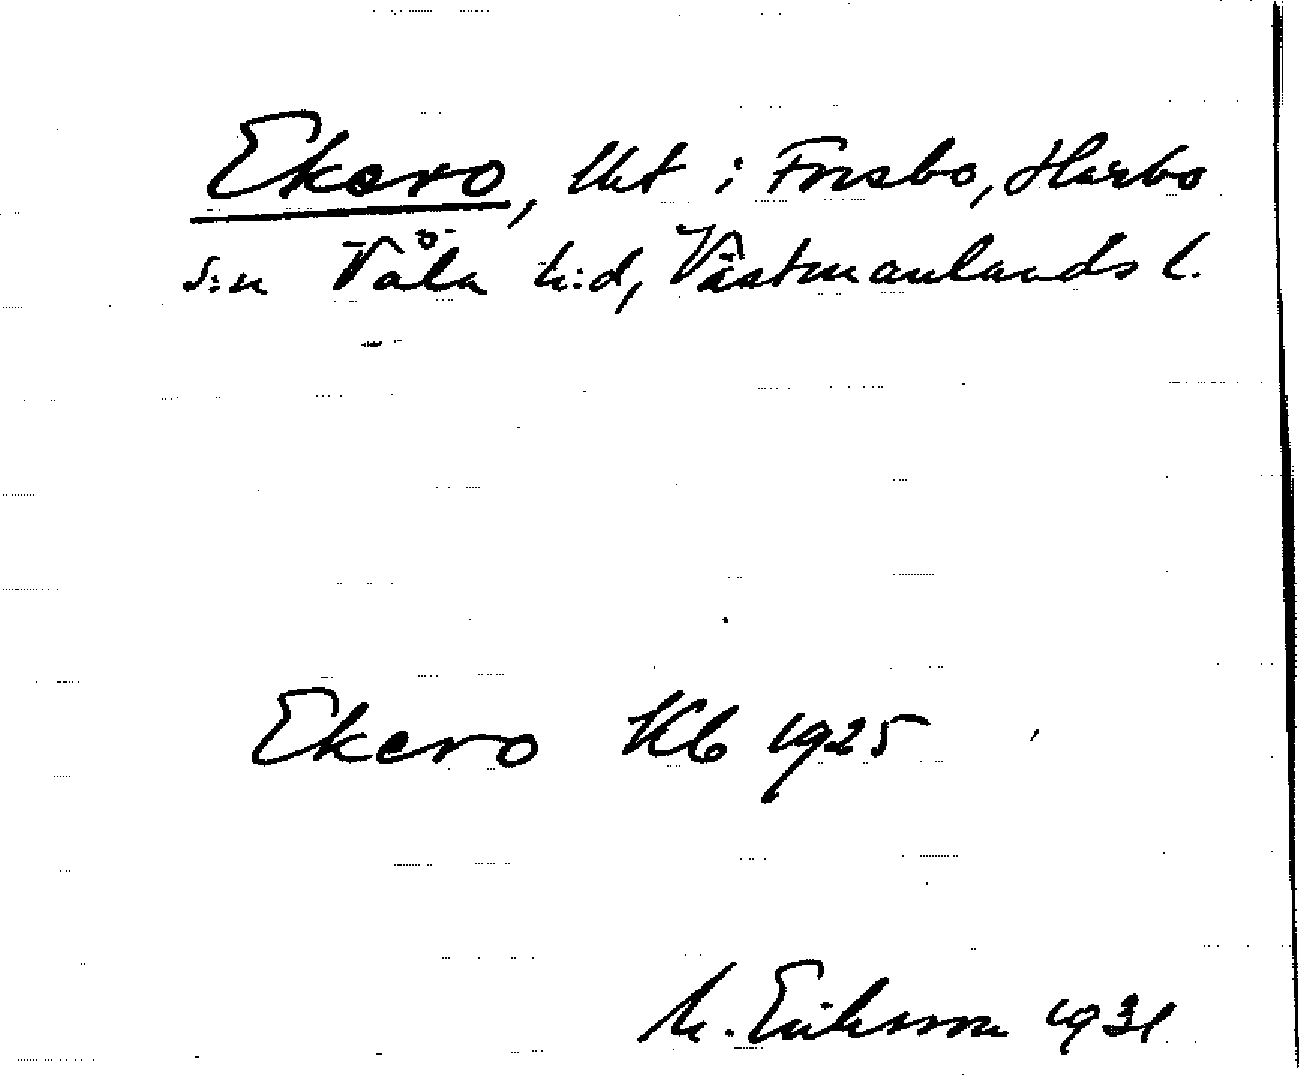 Ekero, lht i Frisbo, Harbo
s:n Våla h:d, Västmanlands l.
Ekero Kb 1925
M. Eriksson 1931